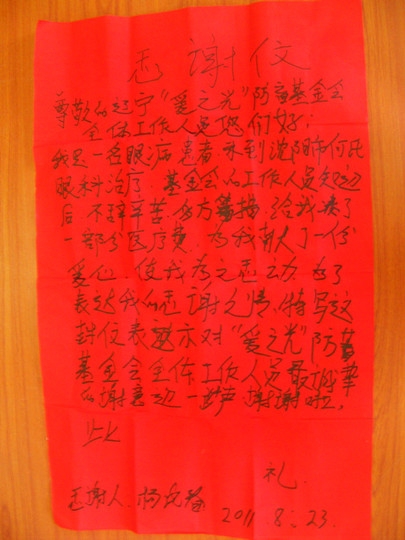 感谢信
尊敬的辽宁“爱之光”防盲基金会
全体工作人员您们好:
我是一名眼病患者,来到沈阳市何氏
眼科治疗。基金会的工作人员知道
后,不辞辛苦,多方筹措,给我凑了
一部分医疗费,为我献了一份
爱心,使我为之感动。为了
表达我的感谢之情,特写这
封信表达亦对“爱之光”防盲
基金会全体工作人员最诚挚
的谢意道一声,谢谢啦。
此
礼
感谢人:杨
2011.8.23